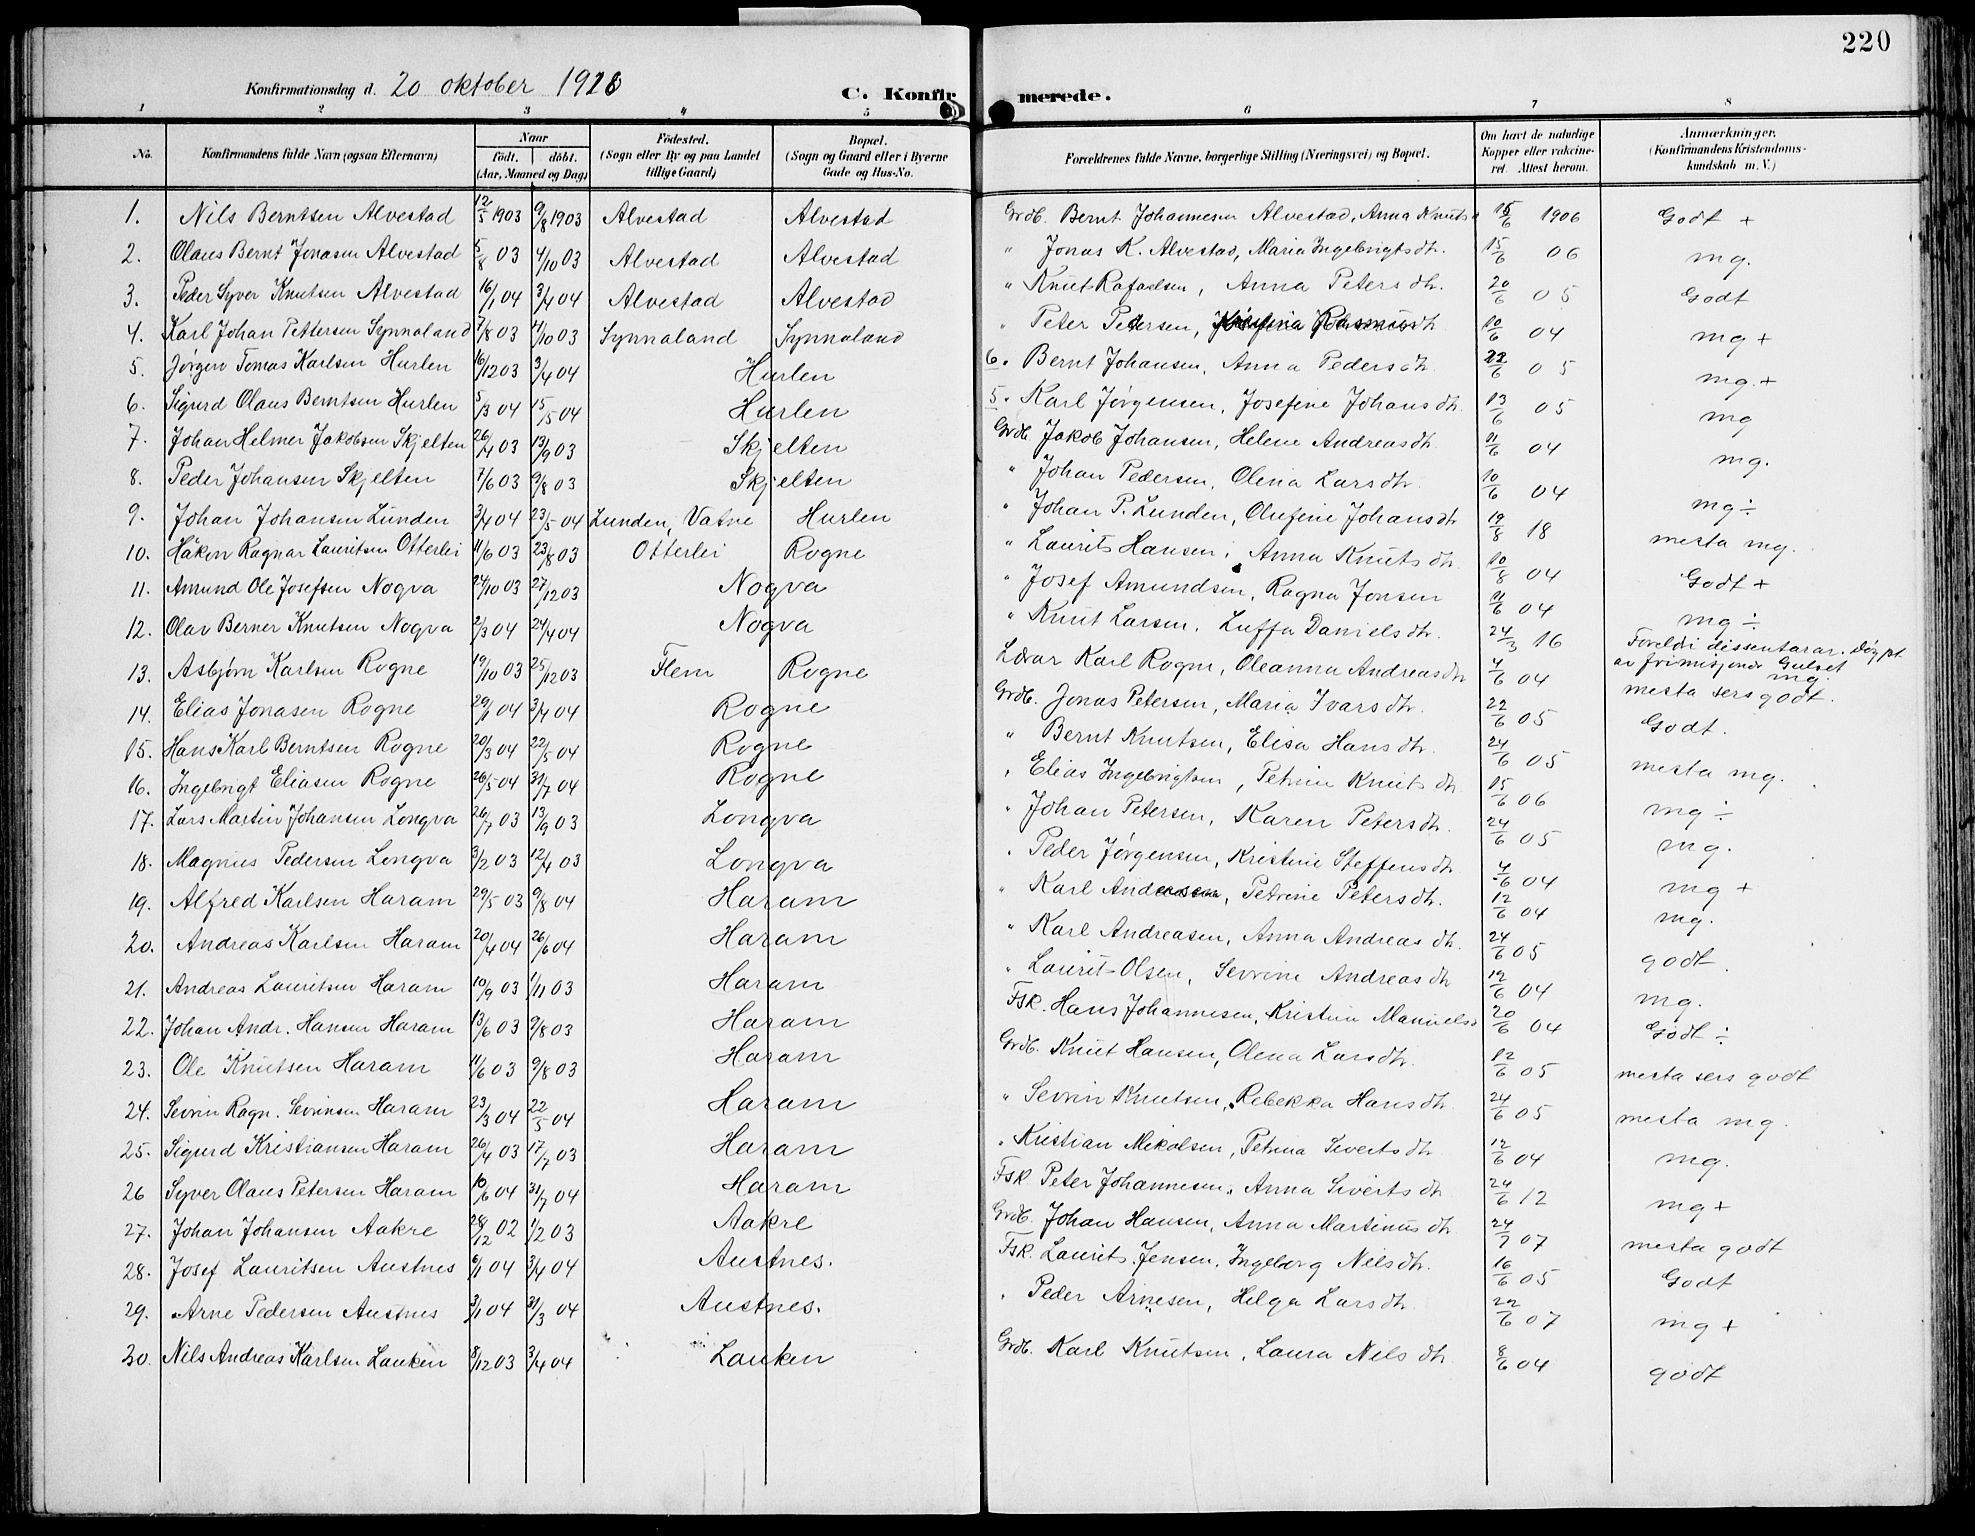 220
Konfirmationsdag d. 20 oktober 1918
C. Konfirmerede.
1 2 3 4 5 6 7 8
No. Konfirmandens fulde Navn (ogsaa Efternavn) Naar født. døbt. (Aar, Maaned og Dag) Fødested. (Sogn eller By og paa Landet tillige Gaard) Bopæl. (Sogn og Gaard eller i Byerne Gade og Hus-No. Forældrenes fulde Navne, borgerlige Stilling (Næringsvei) og Bopæl. Om havt de naturlige Kopper eller vakcineret. Attest herom. Anmærkninger. (Konfirmandens Kristendomskundskab m. V.)
1. Nils Berntsen Alvestad 12/5 1903 9/8 1903 Alvestad Alvestad Grdb. Bernt Johannesen Alvestad, Anna Knuts 15/6 1906 Godt +
2. Olaus Bernt Jonasen Alvestad 5/8 03 4/10 03 Alvestad Alvestad " Jonas K. Alvestad, Maria Ingebrigtsdtr. 15/6 06 mg.
3. Peder Syver Knutsen Alvestad 16/1 04 3/4 04 Alvestad Alvestad " Knut Rafaelsen, Anna Petersdtr. 20/6 05 Godt
4. Karl Johan Pettersen Synnaland 7/8 03 11/10 03 Synnaland Synnaland " Peter Pedersen, 10/6 04 mg +
5. Jørgen Tomas Karlsen Hurlen 16/12 03 3/4 04 Hurlen 6. Bernt Johansen, Anna Pedersdtr. 22/6 05 mg. +
6. Sigurd Olaus Berntsen Hurlen 5/3 04 15/5 04 Hurlen 5. Karl Jørgensen, Josefine Johansdtr. 13/6 05 mg
7. Johan Helmer Jakobsen Skjelten 26/4 03 13/9 03 Skjelten Grdb. Jakob Johansen, Helene Andreasdtr. 11/6 04 mg.
8. Peder Johansen Skjelten 7/6 03 9/8 03 Skjelten " Johan Pedersen, Olina Larsdtr. 10/6 04 mg ÷
9. Johan Johansen Lunden 3/4 04 23/5 04 Lunden, Vatne Hurlen " Johan P. Lunden, Olufine Johansdtr 19/8 18 mesta mg.
10. Håkon Ragnar Lauritsen Otterlei 11/6 03 23/8 03 Otterlei Rogne " Laurits Hansen, Anna Knutsdtr. 10/8 04 Godt +
11. Amund Ole Josefsen Nogva 24/10 03 27/12 03 Nogva " Josef Amundsen, Ragna Jonsen 11/6 04 mg ÷
12. Olav Berner Knutsen Nogva 2/3 04 24/4 04 Nogva " Knut Larsen, Luffa Danielsdtr. 24/3 16 Foreldri dissentarar. Døypt av frimisjonær Gulset mg.
13. Asbjørn Karlsen Rogne 19/10 03 25/12 03 Flem Rogne Lærar Karl Rogne, Oleanna Andreasdtr 4/6 04 mesta sers godt.
14. Elias Jonasen Rogne 29/1 04 3/4 04 Rogne Grdb. Jonas Petersen, Maria Ivarsdtr. 22/6 05 Godt.
15. Hans Karl Berntsen Rogne 20/3 04 22/5 04 Rogne " Bernt Knutsen, Elisa Hansdtr. 24/6 05 mesta mg.
16. Ingebrigt Eliasen Rogne 26/5 04 31/7 04 Rogne " Elias Ingebrigtsen, Petrine Knutsdtr. 15/6 06 mg ÷
17. Lars Martin Johansen Longva 26/7 03 13/9 03 Longva " Johan Petersen, Karen Petersdtr. 24/6 05 mg.
18. Magnus Pedersen Longva 3/2 03 12/4 03 Longva " Peder Jørgensen, Kristine Steffensdtr. 4/6 04 mg +
19. Alfred Karlsen Haram 29/5 03 9/8 04 Haram " Karl Andersen, Petrine Petersdtr. 12/6 04 mg.
20. Andreas Karlsen Haram 20/4 04 26/6 04 Haram " Karl Andreasen, Anna Andreasdtr. 24/6 05 godt.
21. Andreas Lauritsen Haram 10/9 03 1/11 03 Haram " Laurit Olsen, Sevrine Andreasdtr 12/6 04 mg.
22. Johan Andr. Hansen Haram 13/6 03 9/8 03 Haram Fsk. Hans Johannesen, Kristine Manuels 20/6 04 Godt ÷
23. Ole Knutsen Haram 11/6 03 9/8 03 Haram Grdb. Knut Hansen, Olena Larsdtr. 12/6 05 mesta sers godt
24. Sevrin Ragn. Sevrinsen Haram 23/3 04 22/5 04 Haram " Sevrin Knutsen, Rebekka Hansdtr. 24/6 05 mesta mg.
25. Sigurd Kristiansen Haram 26/4 03 17/7 03 Haram " Kristian Mikalsen, Petrina Sivertsdtr. 12/6 04 mg.
26 Syver Olaus Petersen Haram 10/6 04 31/7 04 Haram Fsk Peter Johannesen, Anna Sivertsdtr 24/6 12 mg +
27. Johan Johansen Aakre 28/12 02 1/2 03 Aakre Grdb. Johan Hansen, Anna Martinusdtr 24/7 07 mesta godt
28. Josef Lauritsen Austnes 6/1 04 3/4 04 Austnes. Fsk. Laurits Jensen, Ingeborg Nilsdtr. 16/6 05 Godt
29. Arne Pedersen Austnes 3/1 04 31/3 04 Austnes. " Peder Arnesen, Helga Larsdtr. 22/6 07 mg +
30. Nils Andreas Karlsen Lauken 8/12 03 3/4 04 Lauken Grdb. Karl Knutsen, Laura Nilsdtr 8/6 04 godt